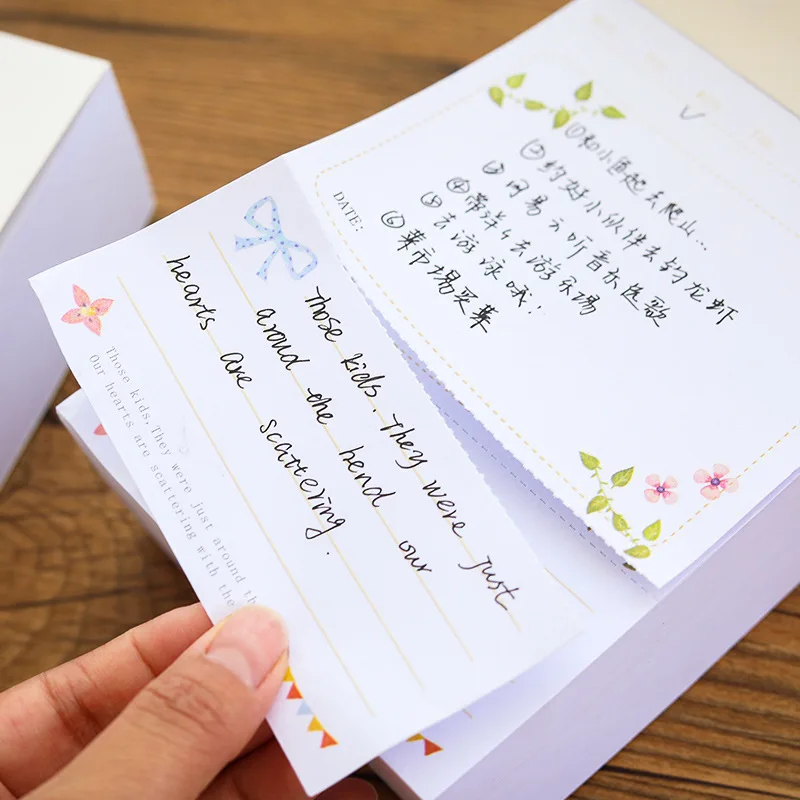 ✓
①和小鱼起去爬山..
②约好小伙伴去钓龙虾
③网易云听音乐选歌
④带弹个去游乐场
⑤去游泳哦..
⑥菜市場买菜
DATE:
Those kids. They were just
aroud the bend our
hearts are scattering.
Those kids,They were just around th
Our hearts are scattering with the